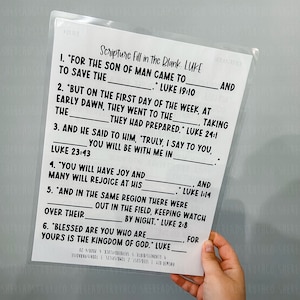 Scripture Fill in the Blank: LUKE
1. "FOR THE SON OF MAN CAME TO ______ AND
TO SAVE THE ______." LUKE 19:10
2. "BUT ON THE FIRST DAY OF THE WEEK, AT
EARLY DAWN, THEY WENT TO THE ______, TAKING
THE ______ THEY HAD PREPARED." LUKE 24:1
3. AND HE SAID TO HIM, "TRULY, I SAY TO YOU,
______ YOU WILL BE WITH ME IN ______."
LUKE 23:43
4. "YOU WILL HAVE JOY AND ______, AND
MANY WILL REJOICE AT HIS ______." LUKE 1:14
5. "AND IN THE SAME REGION THERE WERE
______ OUT IN THE FIELD, KEEPING WATCH
OVER THEIR ______ BY NIGHT." LUKE 2:8
6. "BLESSED ARE YOU WHO ARE ______, FOR
YOURS IS THE KINGDOM OF GOD." LUKE